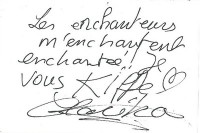 Les enchanteurs
m'enchantent
enchantée! Je
vous KIFFE